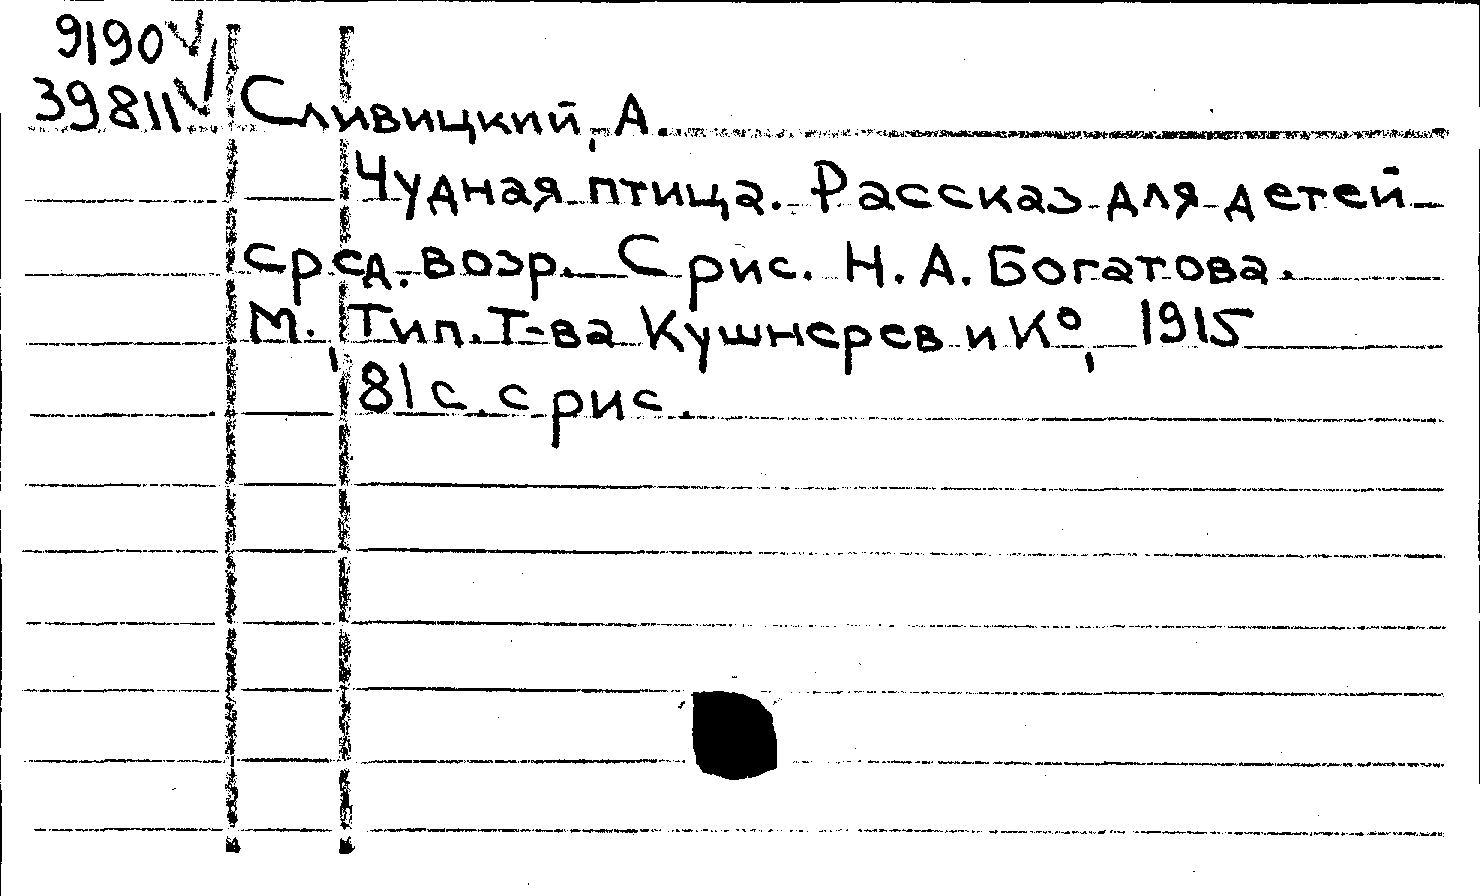 9190 ✓
39811 ✓ Сливицкий, А.
Чудная птица. Рассказ для детей
сред. возр. С рис. Н. А. Богатова.
М., Тип. Т-ва Кушнерев и К⁰, 1915
81 с. с рис.